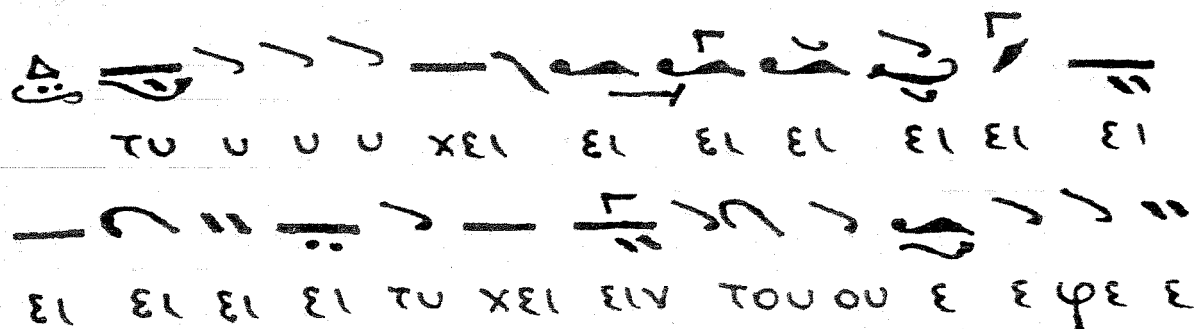 τυ υ υ υ χει ει ει ει ει ει ει
ει ει ει ει τυ χει ειν του ου ε ε φε ε